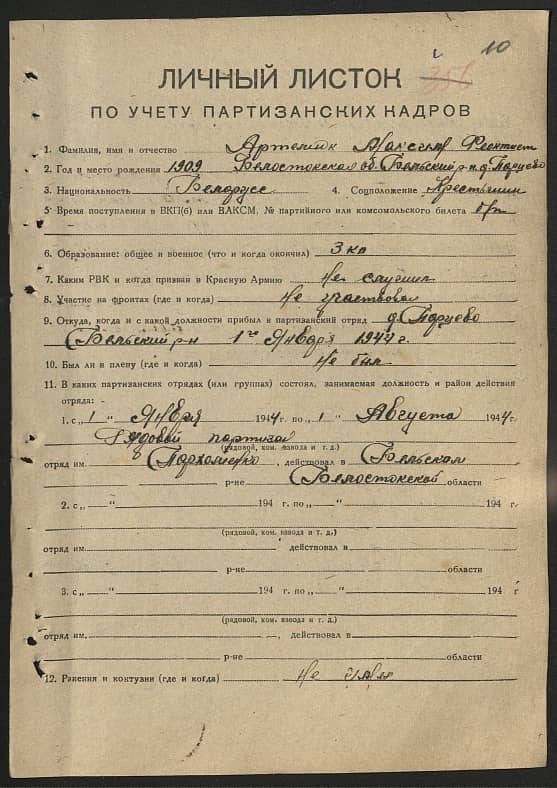 10
356
ЛИЧНЫЙ ЛИСТОК
ПО УЧЕТУ ПАРТИЗАНСКИХ КАДРОВ
1. Фамилия, имя и отчество Артемюк Максим Феоктист
2. Год и место рождения 1909 Белостокская об. Бельский р-н д. Парцево
3. Национальность Белорусс 4. Соцположение Крестьянин
5. Время поступления в ВКП(б) или ВЛКСМ, № партийного или комсомольского билета б/п
6. Образование: общее и военное (что и когда окончил) 3 кл
7. Каким РВК и когда призван в Красную Армию Не служил
8. Участие на фронтах (где и когда) Не участвовал
9. Откуда, когда и с какой должности прибыл в партизанский отряд д. Парцево
Бельский р-н 1го Января 1944 г.
10. Был ли в плену (где и когда) Не был
11. В каких партизанских отрядах (или группах) состоял, занимаемая должность и район действия
отряда:
1. с „ 1 " Января 1944 г. по „ 1 " Августа 1944 г.
Рядовой партизан
(рядовой, ком. взвода и т. д.)
отряд им. Пархоменко, действовал в Бельском
р-не Белостокской области
2. с „ " 194 г. по „ " 194 г.
(рядовой, ком. взвода и т. д.)
отряд им. действовал в
р-не области
3. с „ " 194 г. по „ " 194 г
(рядовой, ком. взвода и т. д.)
отряд им. , действовал в
р-не области
12. Ранения и контузии (где и когда) Не имел